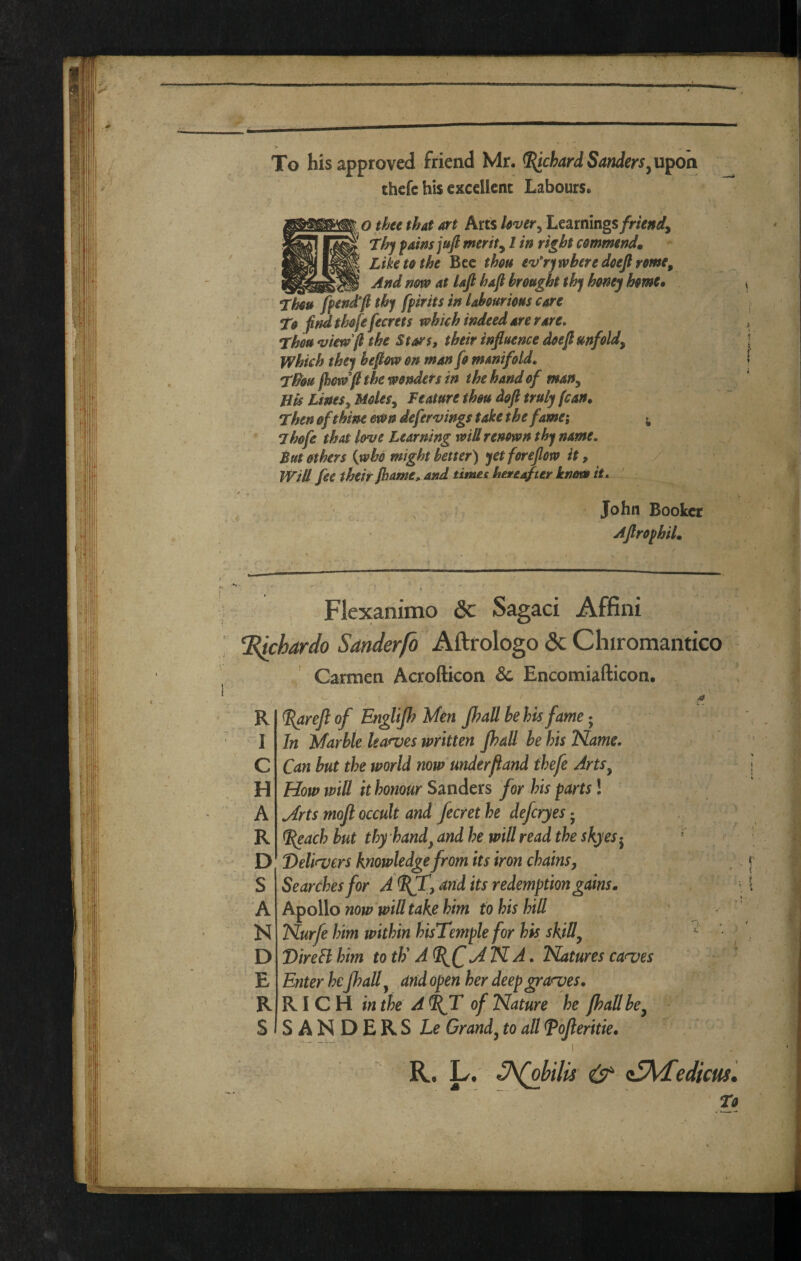 To his approved friend Mr. Richard Sanders, upon
theſe his excellent Labours.
TO thee that art Arts lover, Learnings friend,
Thy pains juſt merit, I in right commend.
Like to the Bee thou ev'ry where doeſt rome,
And now at laſt haſt brought thy honey home.
Thou ſpend'ſt thy ſpirits in labourious care
To find thoſe ſecrets which indeed are rare.
Thou view'ſt the Stars, their influence doeſt unfold,
Which they beſtow on man ſo manifold.
Thou ſhow'ſt the wonders in the hand of man,
His Lines, Moles, Feature thou doſt truly ſcan.
Then of thine own deſervings take the fame;
Thoſe that love Learning will renown thy name.
But others (who might better) yet foreſlow it,
Will ſee their ſhame, and times hereafter know it.
John Booker
Aſtrophil.
Flexanimo & Sagaci Affini
Richardo Sanderſo Aſtrologo & Chiromantico
Carmen Acroſticon & Encomiaſticon.
R Rareſt of Engliſh Men ſhall be his fame;
I In Marble leaves written ſhall be his Name.
C Can but the world now underſtand theſe Arts,
H How will it honour Sanders for his parts!
A Arts moſt occult and ſecret he deſcryes;
R Reach but thy hand, and he will read the skyes;
D Delivers knowledge from its iron chains,
S Searches for ART, and its redemption gains.
A Apollo now will take him to his hill
N Nurſe him within hisTemple for his skill,
D Direct him to th' ARCANA. Natures caves
E Enter he ſhall, and open her deep graves.
R RICH in the ART of Nature he ſhall be,
S SANDERS Le Grand, to all Poſteritie.
R. L. Nobilis & Medicus.
To